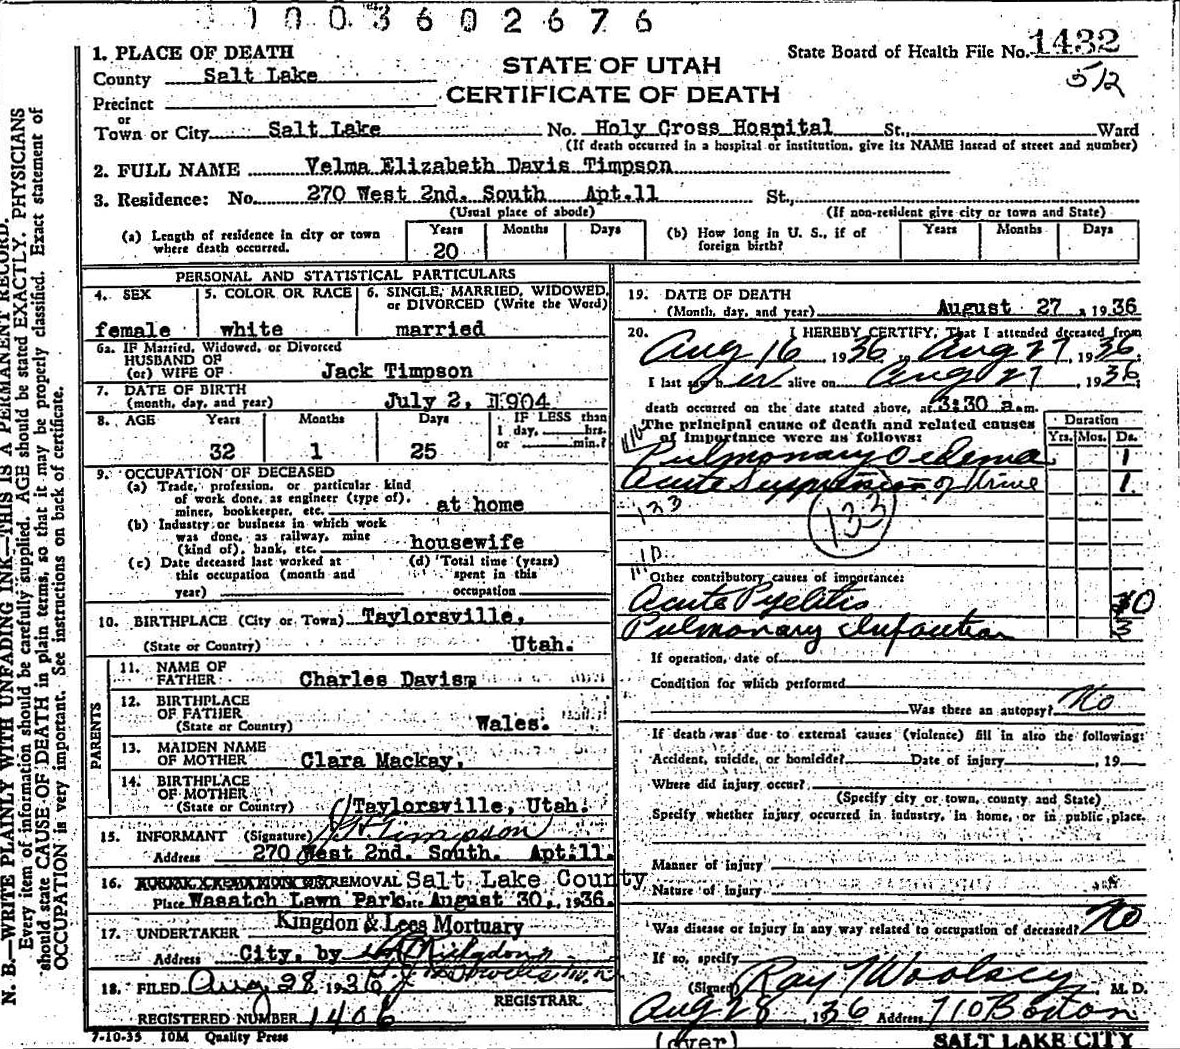 1003602676
1. PLACE OF DEATH
County Salt Lake
STATE OF UTAH
CERTIFICATE OF DEATH
State Board of Health File No. 1432
512
Precinct
or
Town or City Salt Lake No. Holy Cross Hospital St., Ward
(If death occurred in a hospital or institution, give its NAME instead of street and number)
2. FULL NAME Velma Elizabeth Davis Timpson
3. Residence: No. 270 West 2nd. South Apt.11 St.,
(Usual place of abode) (If non-resident give city or town and State)
(a) Length of residence in city or town where death occurred. Years 20 Months Days
(b) How long in U. S., if of foreign birth? Years Months Days
PERSONAL AND STATISTICAL PARTICULARS
4. SEX 5. COLOR OR RACE 6. SINGLE, MARRIED, WIDOWED, or DIVORCED (Write the Word)
female white married
6a. IF Married, Widowed, or Divorced
HUSBAND OF
(or) WIFE OF Jack Timpson
7. DATE OF BIRTH
(month, day, and year) July 2, 1904
8. AGE Years Months Days IF LESS than
1 day, hrs.
or min.?
32 1 25
9. OCCUPATION OF DECEASED
(a) Trade, profession, or particular kind
of work done, as engineer (type of),
miner, bookkeeper, etc. at home
(b) Industry or business in which work
was done, as railway, mine
(kind of), bank, etc. housewife
(c) Date deceased last worked at
this occupation (month and
year)
(d) Total time (years)
spent in this
occupation
10. BIRTHPLACE (City or Town) Taylorsville,
(State or Country) Utah.
PARENTS
11. NAME OF
FATHER Charles Davis
12. BIRTHPLACE
OF FATHER
(State or Country) Wales.
13. MAIDEN NAME
OF MOTHER Clara Mackay.
14. BIRTHPLACE
OF MOTHER
(State or Country) Taylorsville, Utah.
15. INFORMANT (Signature) Timpson
Address 270 West 2nd. South. Apt.11.
16. REMOVAL Salt Lake County
Place Wasatch Lawn Park Date August 30, 1936.
17. UNDERTAKER Kingdon & Lees Mortuary
Address City, by Kingdon
18. FILED Aug 28 1936
REGISTRAR.
REGISTERED NUMBER 1406
7-10-35 10M Quality Press
19. DATE OF DEATH
(Month, day, and year) August 27, 1936
20. I HEREBY CERTIFY, That I attended deceased from
Aug 16 1936 to Aug 27, 1936
I last saw her alive on Aug 27, 1936
death occurred on the date stated above, at 3:30 a.m.
The principal cause of death and related causes
of importance were as follows:
Duration
Yrs. Mos. Ds.
Pulmonary Oedema 1
Acute Suppression of Urine 1
133
133
Other contributory causes of importance:
Acute Pyelitis
Pulmonary Infarction
If operation, date of
Condition for which performed
Was there an autopsy? No
If death was due to external causes (violence) fill in also the following:
Accident, suicide, or homicide? Date of injury , 19
Where did injury occur?
(Specify city or town, county and State)
Specify whether injury occurred in industry, in home, or in public place.
Manner of injury
Nature of injury
Was disease or injury in any way related to occupation of deceased? No
If so, specify
(Signed) Ray T Woolsey M. D.
Aug 28 1936 Address 710 Boston
(over) SALT LAKE CITY
N. B.—WRITE PLAINLY WITH UNFADING INK—THIS IS A PERMANENT RECORD.
Every item of information should be carefully supplied. AGE should be stated EXACTLY. PHYSICIANS
should state CAUSE OF DEATH in plain terms, so that it may be properly classified. Exact statement of
OCCUPATION is very important. See instructions on back of certificate.